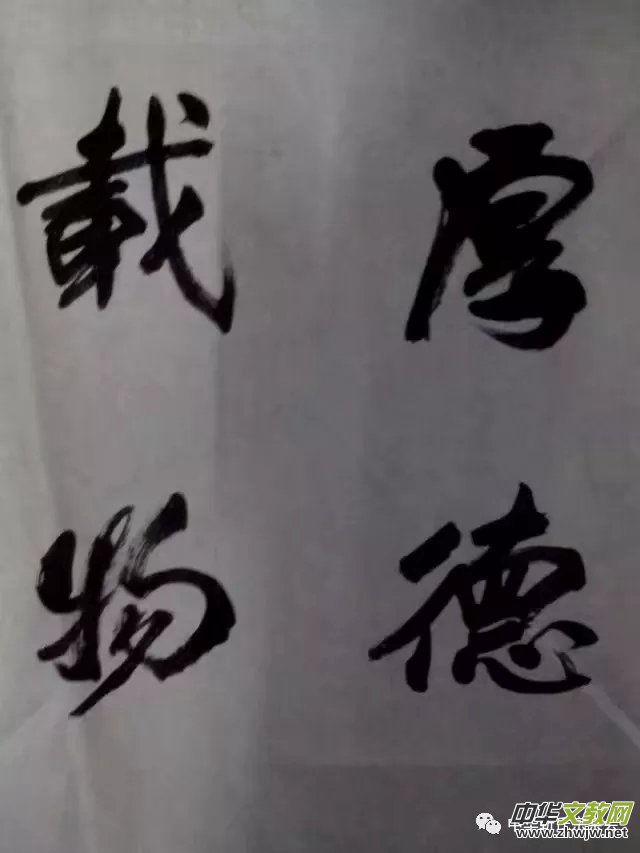 厚德
载物
中华文教网
www.zhwjw.net